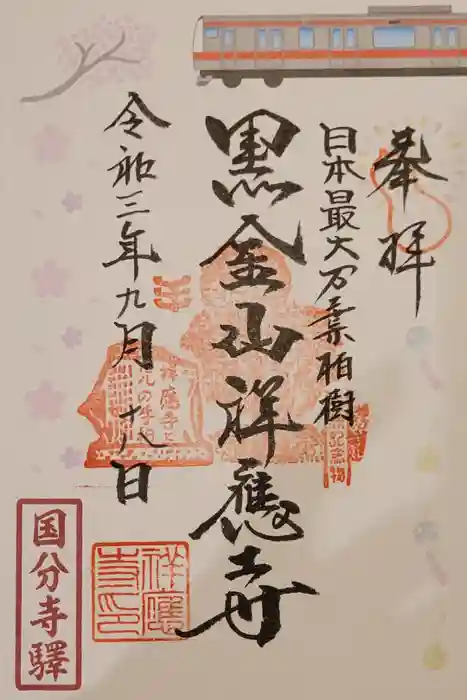 奉拝
日本最大万葉柏樹
黒金山祥應寺
令和三年九月十八日
国分寺驛
祥應寺印